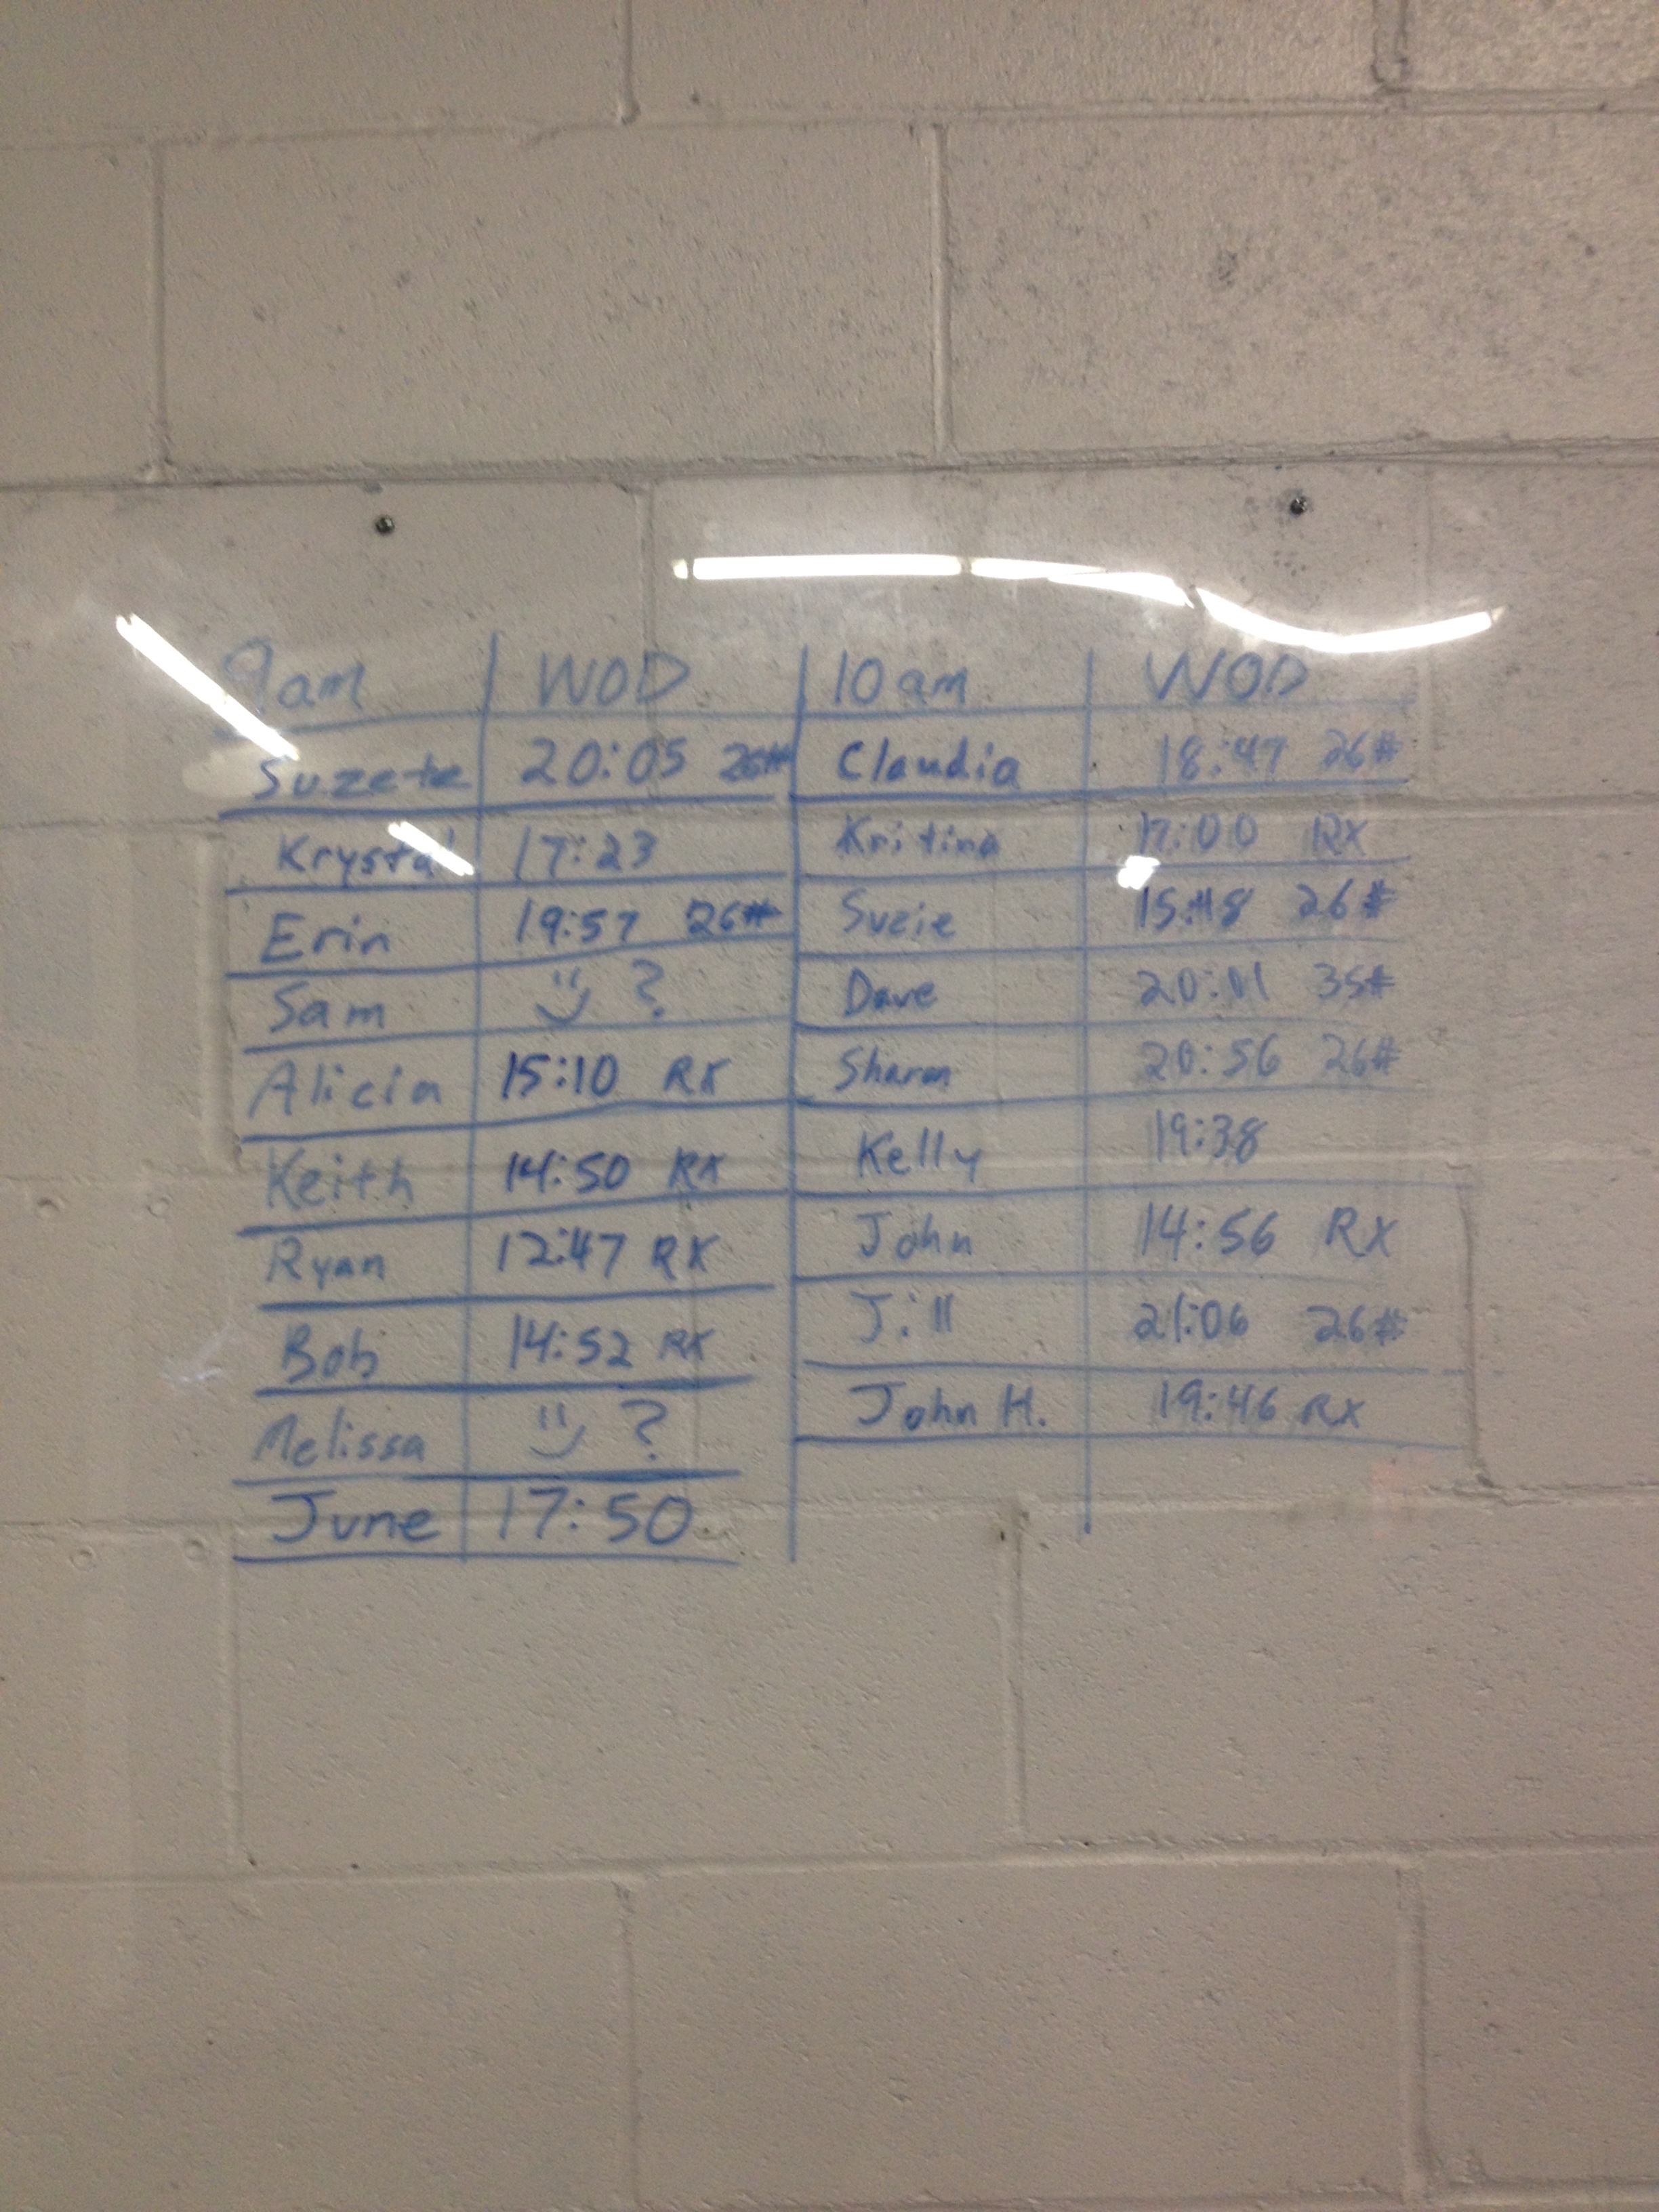 9am WOD 10am WOD
Suzete 20:05 26# Claudia 18:47 26#
Krystal 17:23 Kritina 17:00 RX
Erin 19:57 26# Suzie 15:48 26#
Sam ? Dave 20:01 35#
Alicia 15:10 RX Sharon 20:56 26#
Keith 14:50 RX Kelly 19:38
Ryan 12:47 RX John 14:56 RX
Bob 14:52 RX Jill 21:06 26#
Melissa ? John H. 19:46 RX
June 17:50